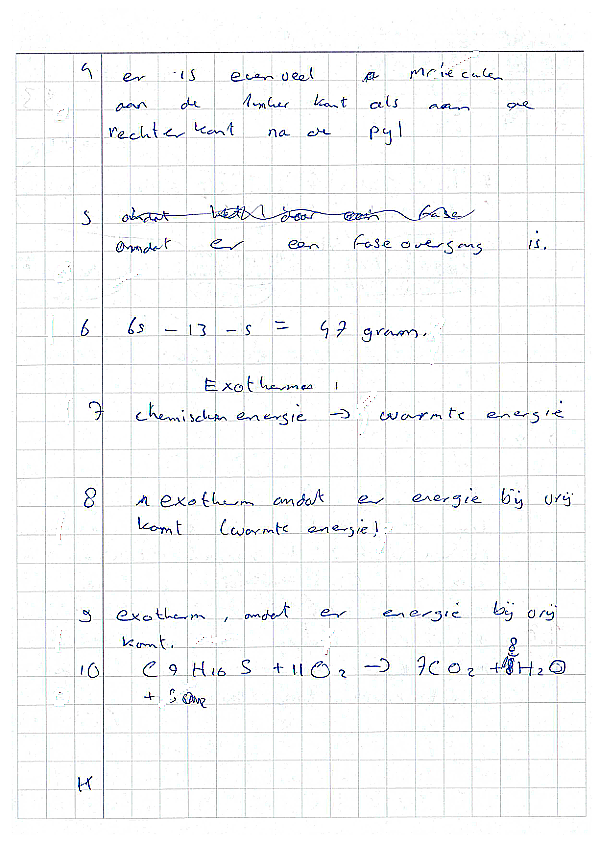 4 er is evenveel moleculen
aan de linker kant als aan de
rechterkant na de pijl
5
omdat er een faseovergang is.
6 65 - 13 - 5 = 47 gram.
Exothermes
7 chemischen energie → warmte energie
8 exotherm omdat er energie bij vrij
komt (warmte energie)
9 exotherm, omdat er energie bij vrij
komt.
10 C9H16S + 11O2 → 7CO2 + 8H2O
+ SO2